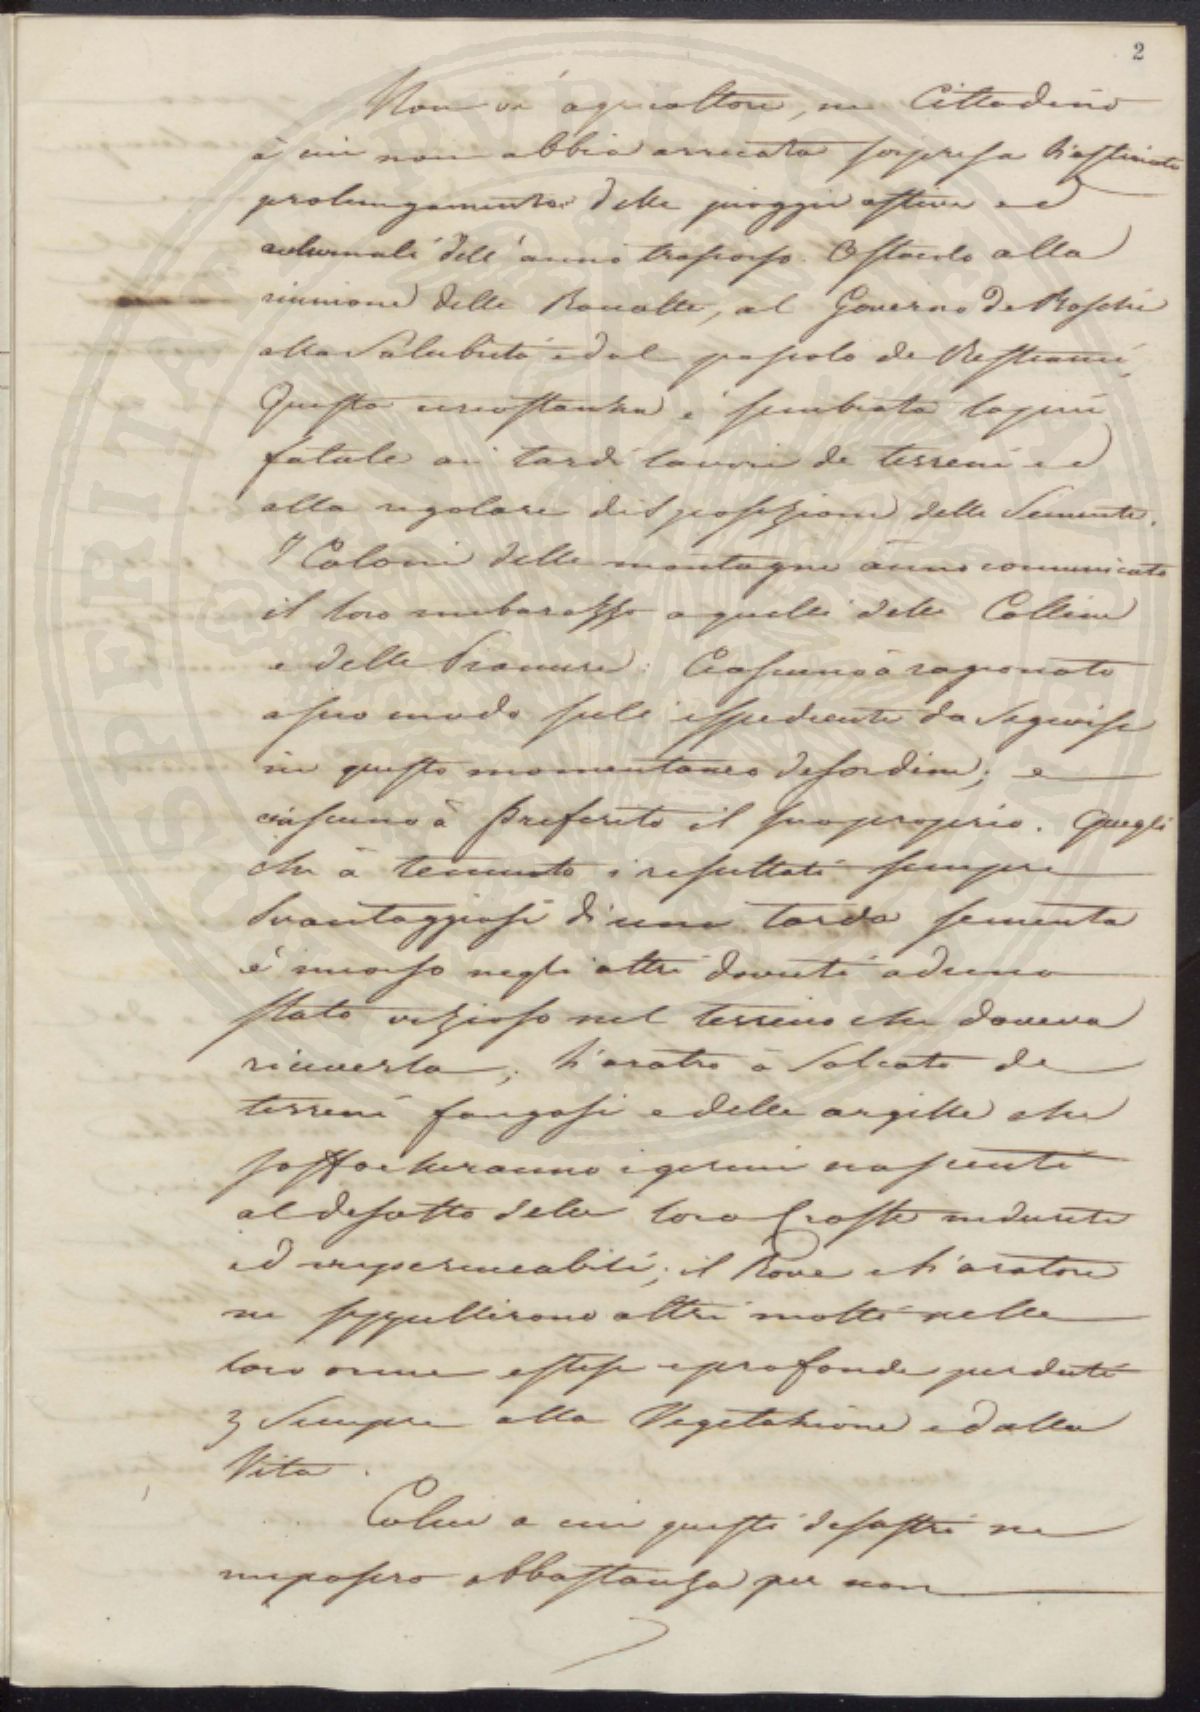 2
Non vi è agricoltore, ne Cittadino
à cui non abbia arrecata sorpresa l'ostinato
prolungamento delle pioggie estive ed
autunnali dell'anno trascorso. Ostando alla
riunione delle Raccolte, al Governo de Boschi
alla Salubrità ed al pascolo de Bestiami,
Questa circostanza è sembrata la più
fatale ai tardi lavori de terreni ed
alla regolare disposizione delle Semente.
I Coloni delle montagne ànno comunicato
il loro imbarazzo a quelli delle Colline
e delle Pianure: Ciascuno à ragionato
a suo modo sull'espediente da Seguirsi
in questo momentaneo disordine; e
ciascuno à Preferito il suo proprio. Quegli
che à temuto i resultati sempre
Svantaggiosi di una tarda sementa
è incorso negli altri dovuti ad uno
stato vizioso nel terreno che doveva
riceverla; l'aratro à Solcato de
terreni fangosi e delle argille che
soffocheranno i germi nascenti
al disotto delle loro Croste indurite
ed impermeabili; il Bove e l'aratore
ne seppellirono altri molti nelle
loro orme estese e profonde perduti
Sempre alla Vegetazione ed alla
Vita.
Colui a cui questi disastri ne
imposero abbastanza per non